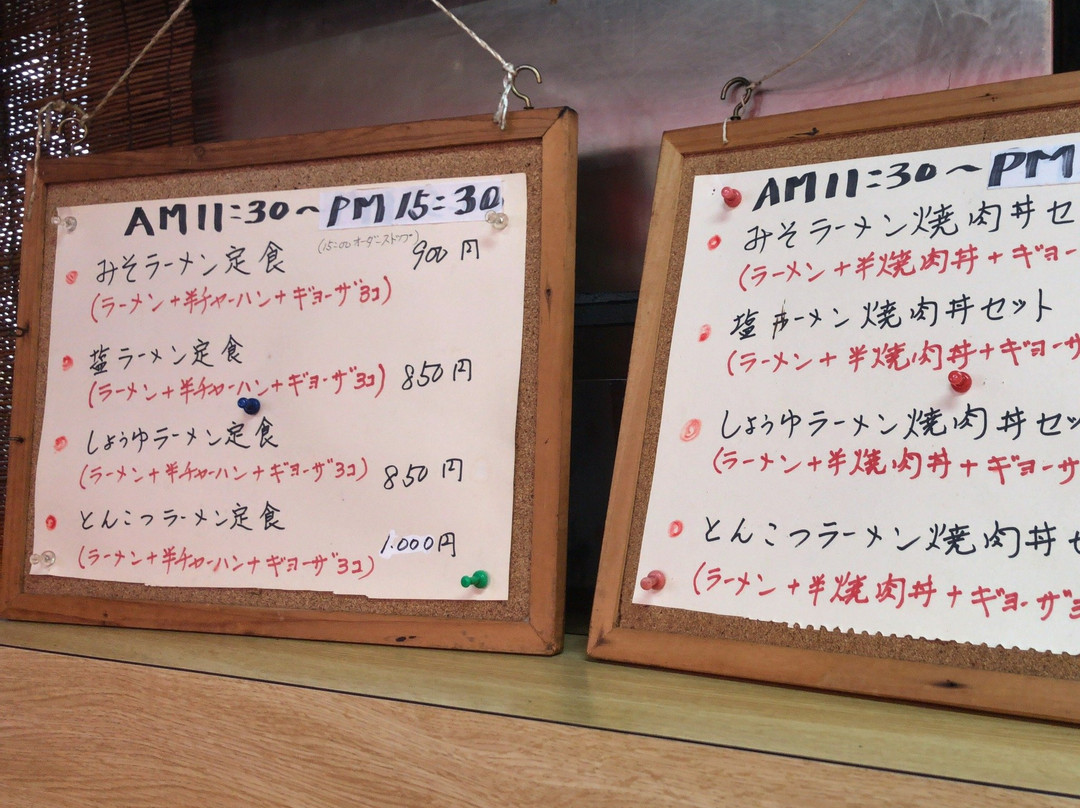 AM11:30～PM15:30
(15:00オーダーストップ)
みそラーメン定食 900円
(ラーメン+半チャーハン+ギョーザ3コ)
塩ラーメン定食
(ラーメン+半チャーハン+ギョーザ3コ) 850円
しょうゆラーメン定食
(ラーメン+半チャーハン+ギョーザ3コ) 850円
とんこつラーメン定食
(ラーメン+半チャーハン+ギョーザ3コ) 1.000円
AM11:30～PM
みそラーメン焼肉丼セ
(ラーメン+半焼肉丼+ギョー
塩ラーメン焼肉丼セット
(ラーメン+半焼肉丼+ギョーサ
しょうゆラーメン焼肉丼セッ
(ラーメン+半焼肉丼+ギョーサ
とんこつラーメン焼肉丼セ
(ラーメン+半焼肉丼+ギョーザ3